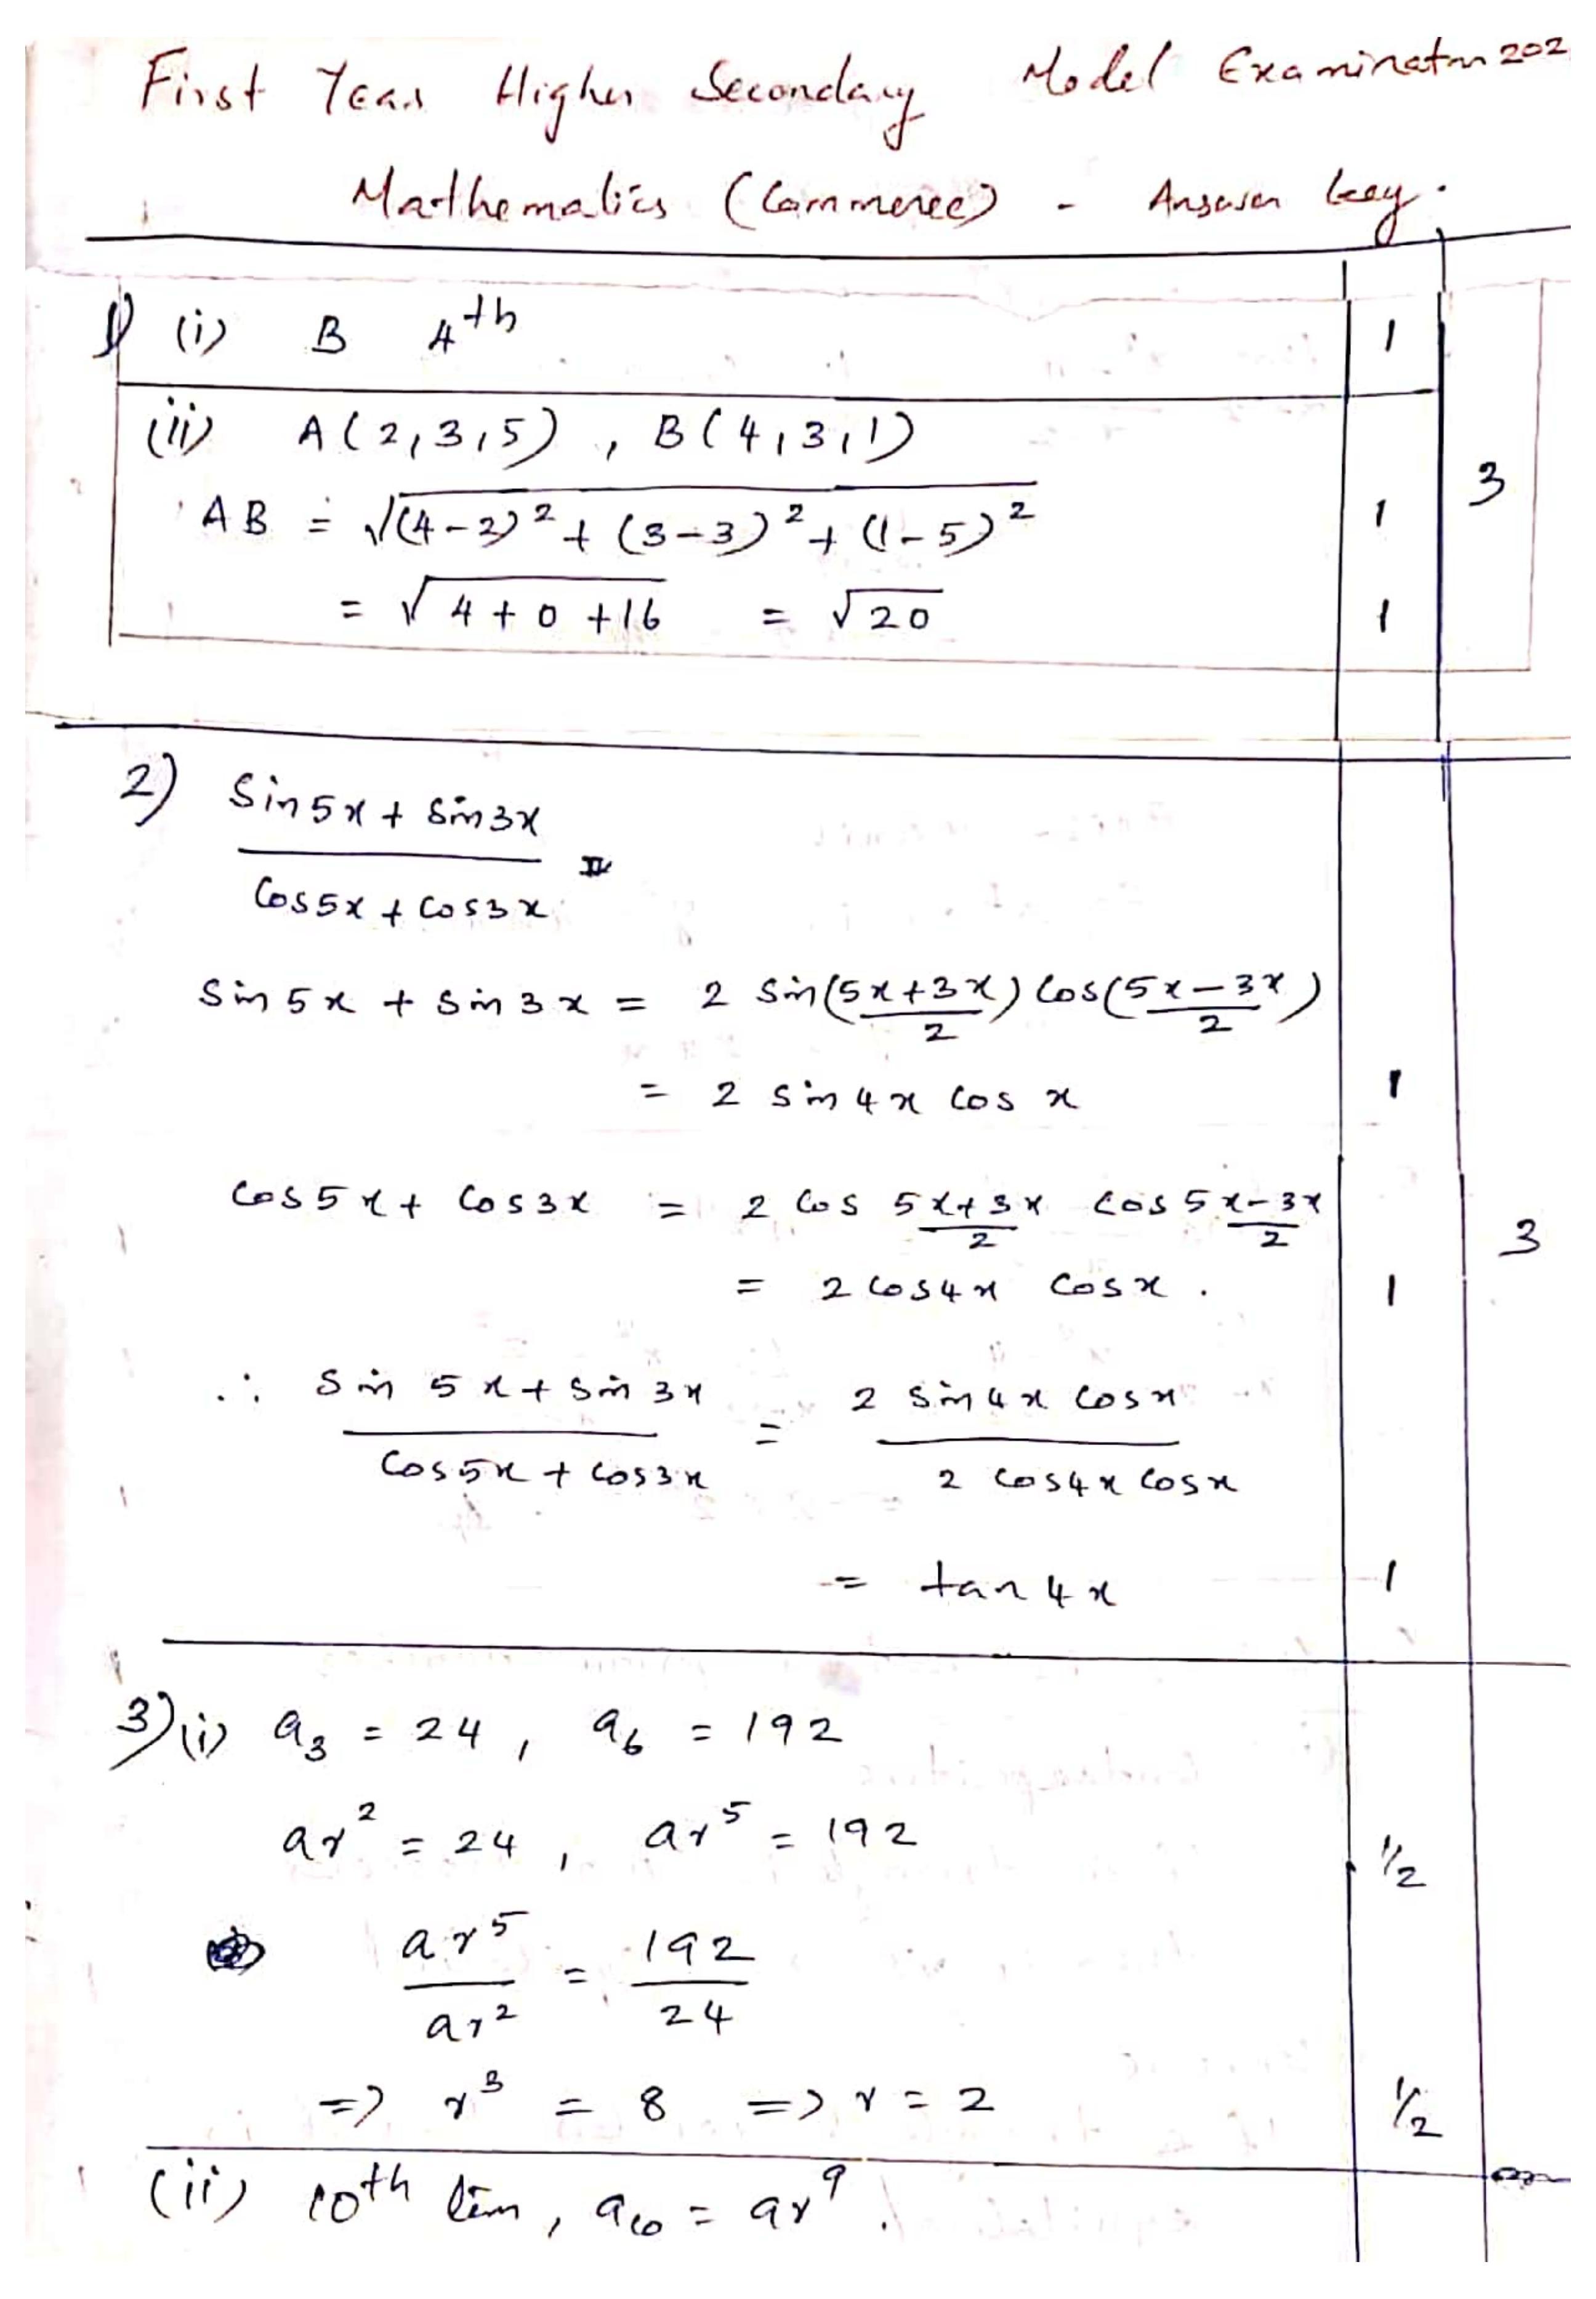 First Year Higher Secondary Model Examinatn 202
Mathematics (Commerce) - Answer key.
1) (i) B 4th 1
(ii) A(2,3,5), B(4,3,1)
AB = √((4-2)² + (3-3)² + (1-5)²) 1 3
= √(4+0+16) = √20 1
2) Sin5x + Sin3x
Cos5x + Cos3x
Sin 5x + Sin 3x = 2 Sin((5x+3x)/2) Cos((5x-3x)/2)
= 2 sin 4x Cos x 1
Cos5x + Cos3x = 2 Cos (5x+3x)/2 Cos (5x-3x)/2 3
= 2 Cos4x Cosx. 1
∴ Sin 5x + Sin 3x = 2 Sin 4x Cosx
Cos5x + Cos3x 2 Cos4x Cosx
= tan 4x 1
3) (i) a₃ = 24, a₆ = 192
ar² = 24, ar⁵ = 192 1/2
ar⁵/ar² = 192/24
=> r³ = 8 => r = 2 1/2
(ii) 10th term, a₁₀ = ar⁹.